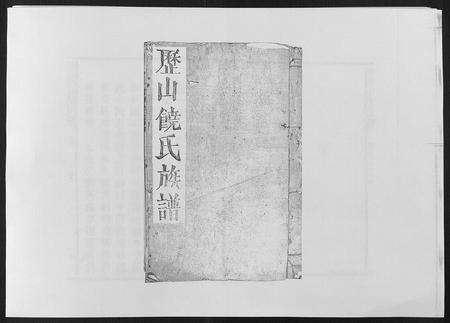 歷山饒氏族譜